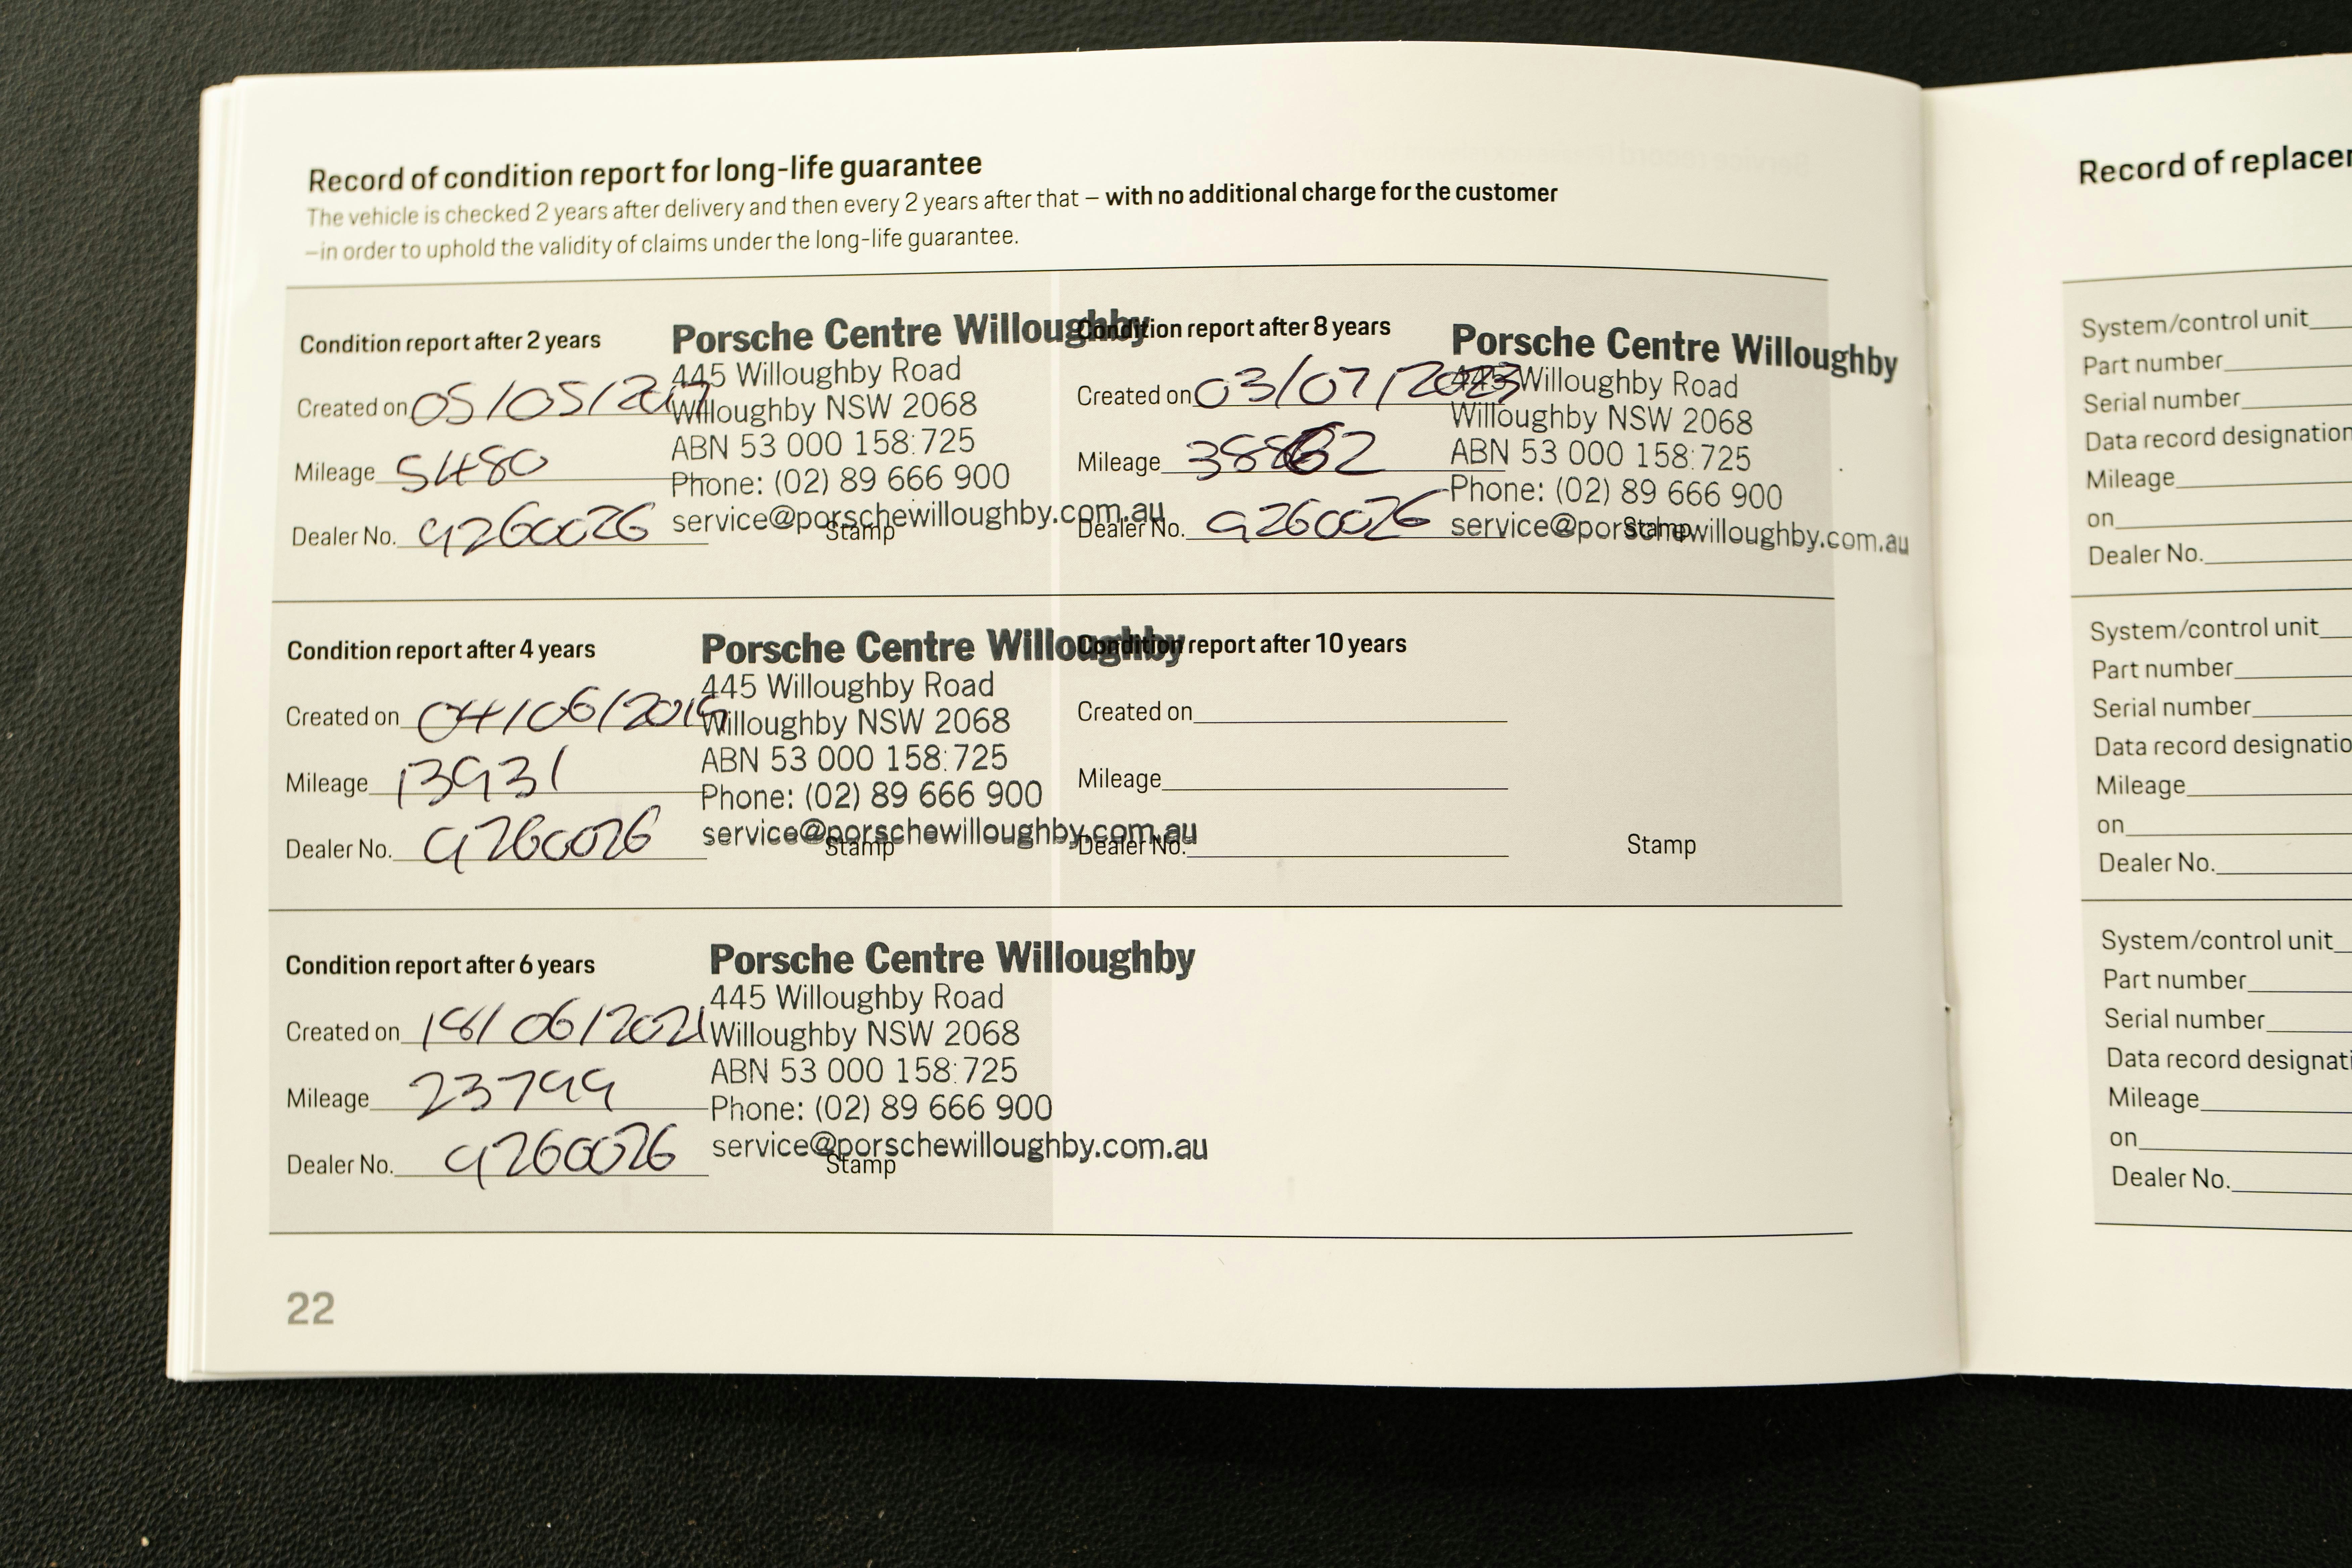 Record of condition report for long-life guarantee
The vehicle is checked 2 years after delivery and then every 2 years after that – with no additional charge for the customer
–in order to uphold the validity of claims under the long-life guarantee.
Condition report after 2 years
Created on 05/05/2017
Mileage 5480
Dealer No. 9260026
Porsche Centre Willoughby
445 Willoughby Road
Willoughby NSW 2068
ABN 53 000 158:725
Phone: (02) 89 666 900
service@porschewilloughby.com.au
Stamp
Condition report after 4 years
Created on 04/06/2019
Mileage 13931
Dealer No. 9260026
Porsche Centre Willoughby
445 Willoughby Road
Willoughby NSW 2068
ABN 53 000 158:725
Phone: (02) 89 666 900
service@porschewilloughby.com.au
Stamp
Condition report after 6 years
Created on 18/06/2021
Mileage 23799
Dealer No. 9260026
Porsche Centre Willoughby
445 Willoughby Road
Willoughby NSW 2068
ABN 53 000 158:725
Phone: (02) 89 666 900
service@porschewilloughby.com.au
Stamp
Condition report after 8 years
Created on 03/07/2023
Mileage
Dealer No. 9260026
Porsche Centre Willoughby
445 Willoughby Road
Willoughby NSW 2068
ABN 53 000 158:725
Phone: (02) 89 666 900
service@porschewilloughby.com.au
Stamp
Condition report after 10 years
Created on
Mileage
Dealer No.
Stamp
22
Record of
System/control unit
Part number
Serial number
Data record designation
Mileage
on
Dealer No.
System/control unit
Part number
Serial number
Data record
Mileage
on
Dealer No.
System/control unit
Part number
Serial number
Data record
Mileage
on
Dealer No.